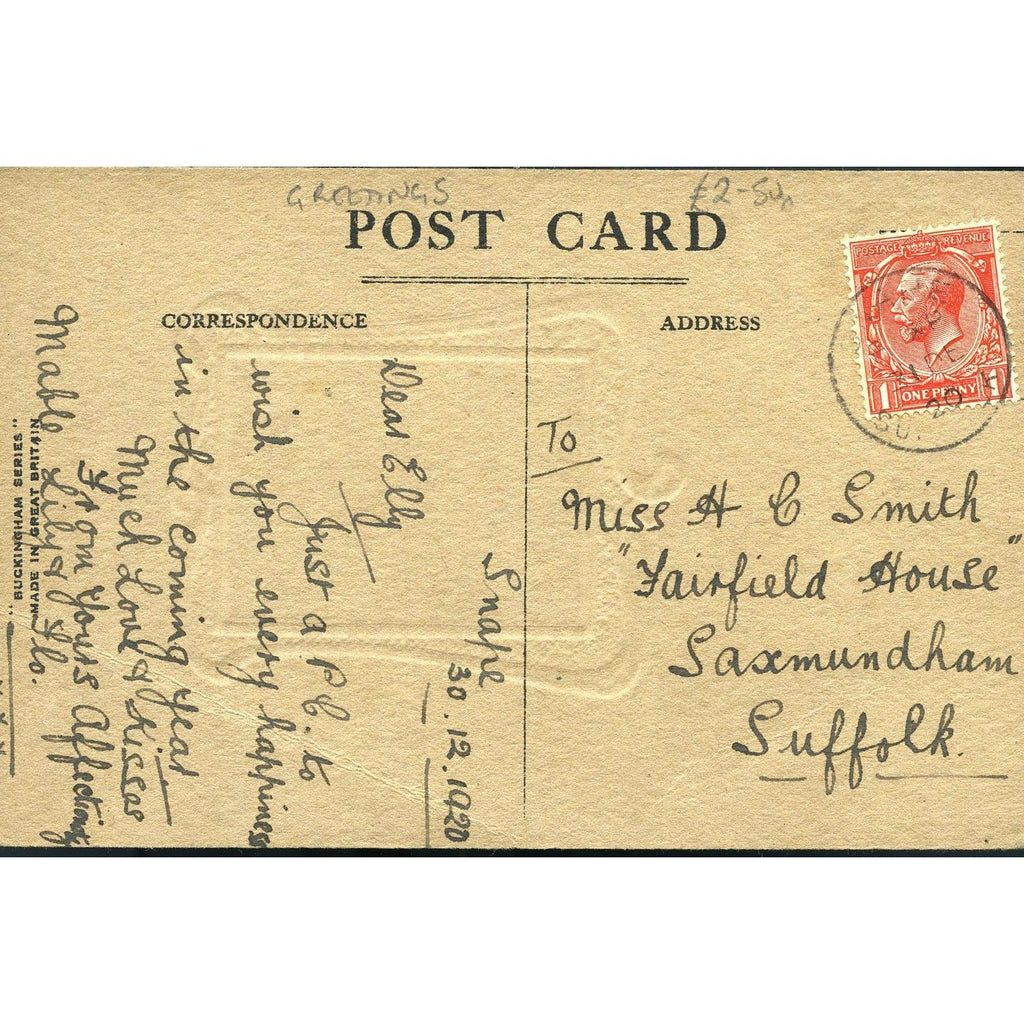 GREETINGS
£2-50
POST CARD
CORRESPONDENCE
ADDRESS
POSTAGE REVENUE
1 ONE PENNY 1
DE
20
SU.
Snape
30.12.1920
Dear Elly
Just a P.C. to
wish you every happiness
in the coming year
Much Love & Kisses
From Yours
Mable Lily & Flo.
"BUCKINGHAM SERIES"
MADE IN GREAT BRITAIN
To
Miss H C Smith
"Fairfield House"
Saxmundham
Suffolk.